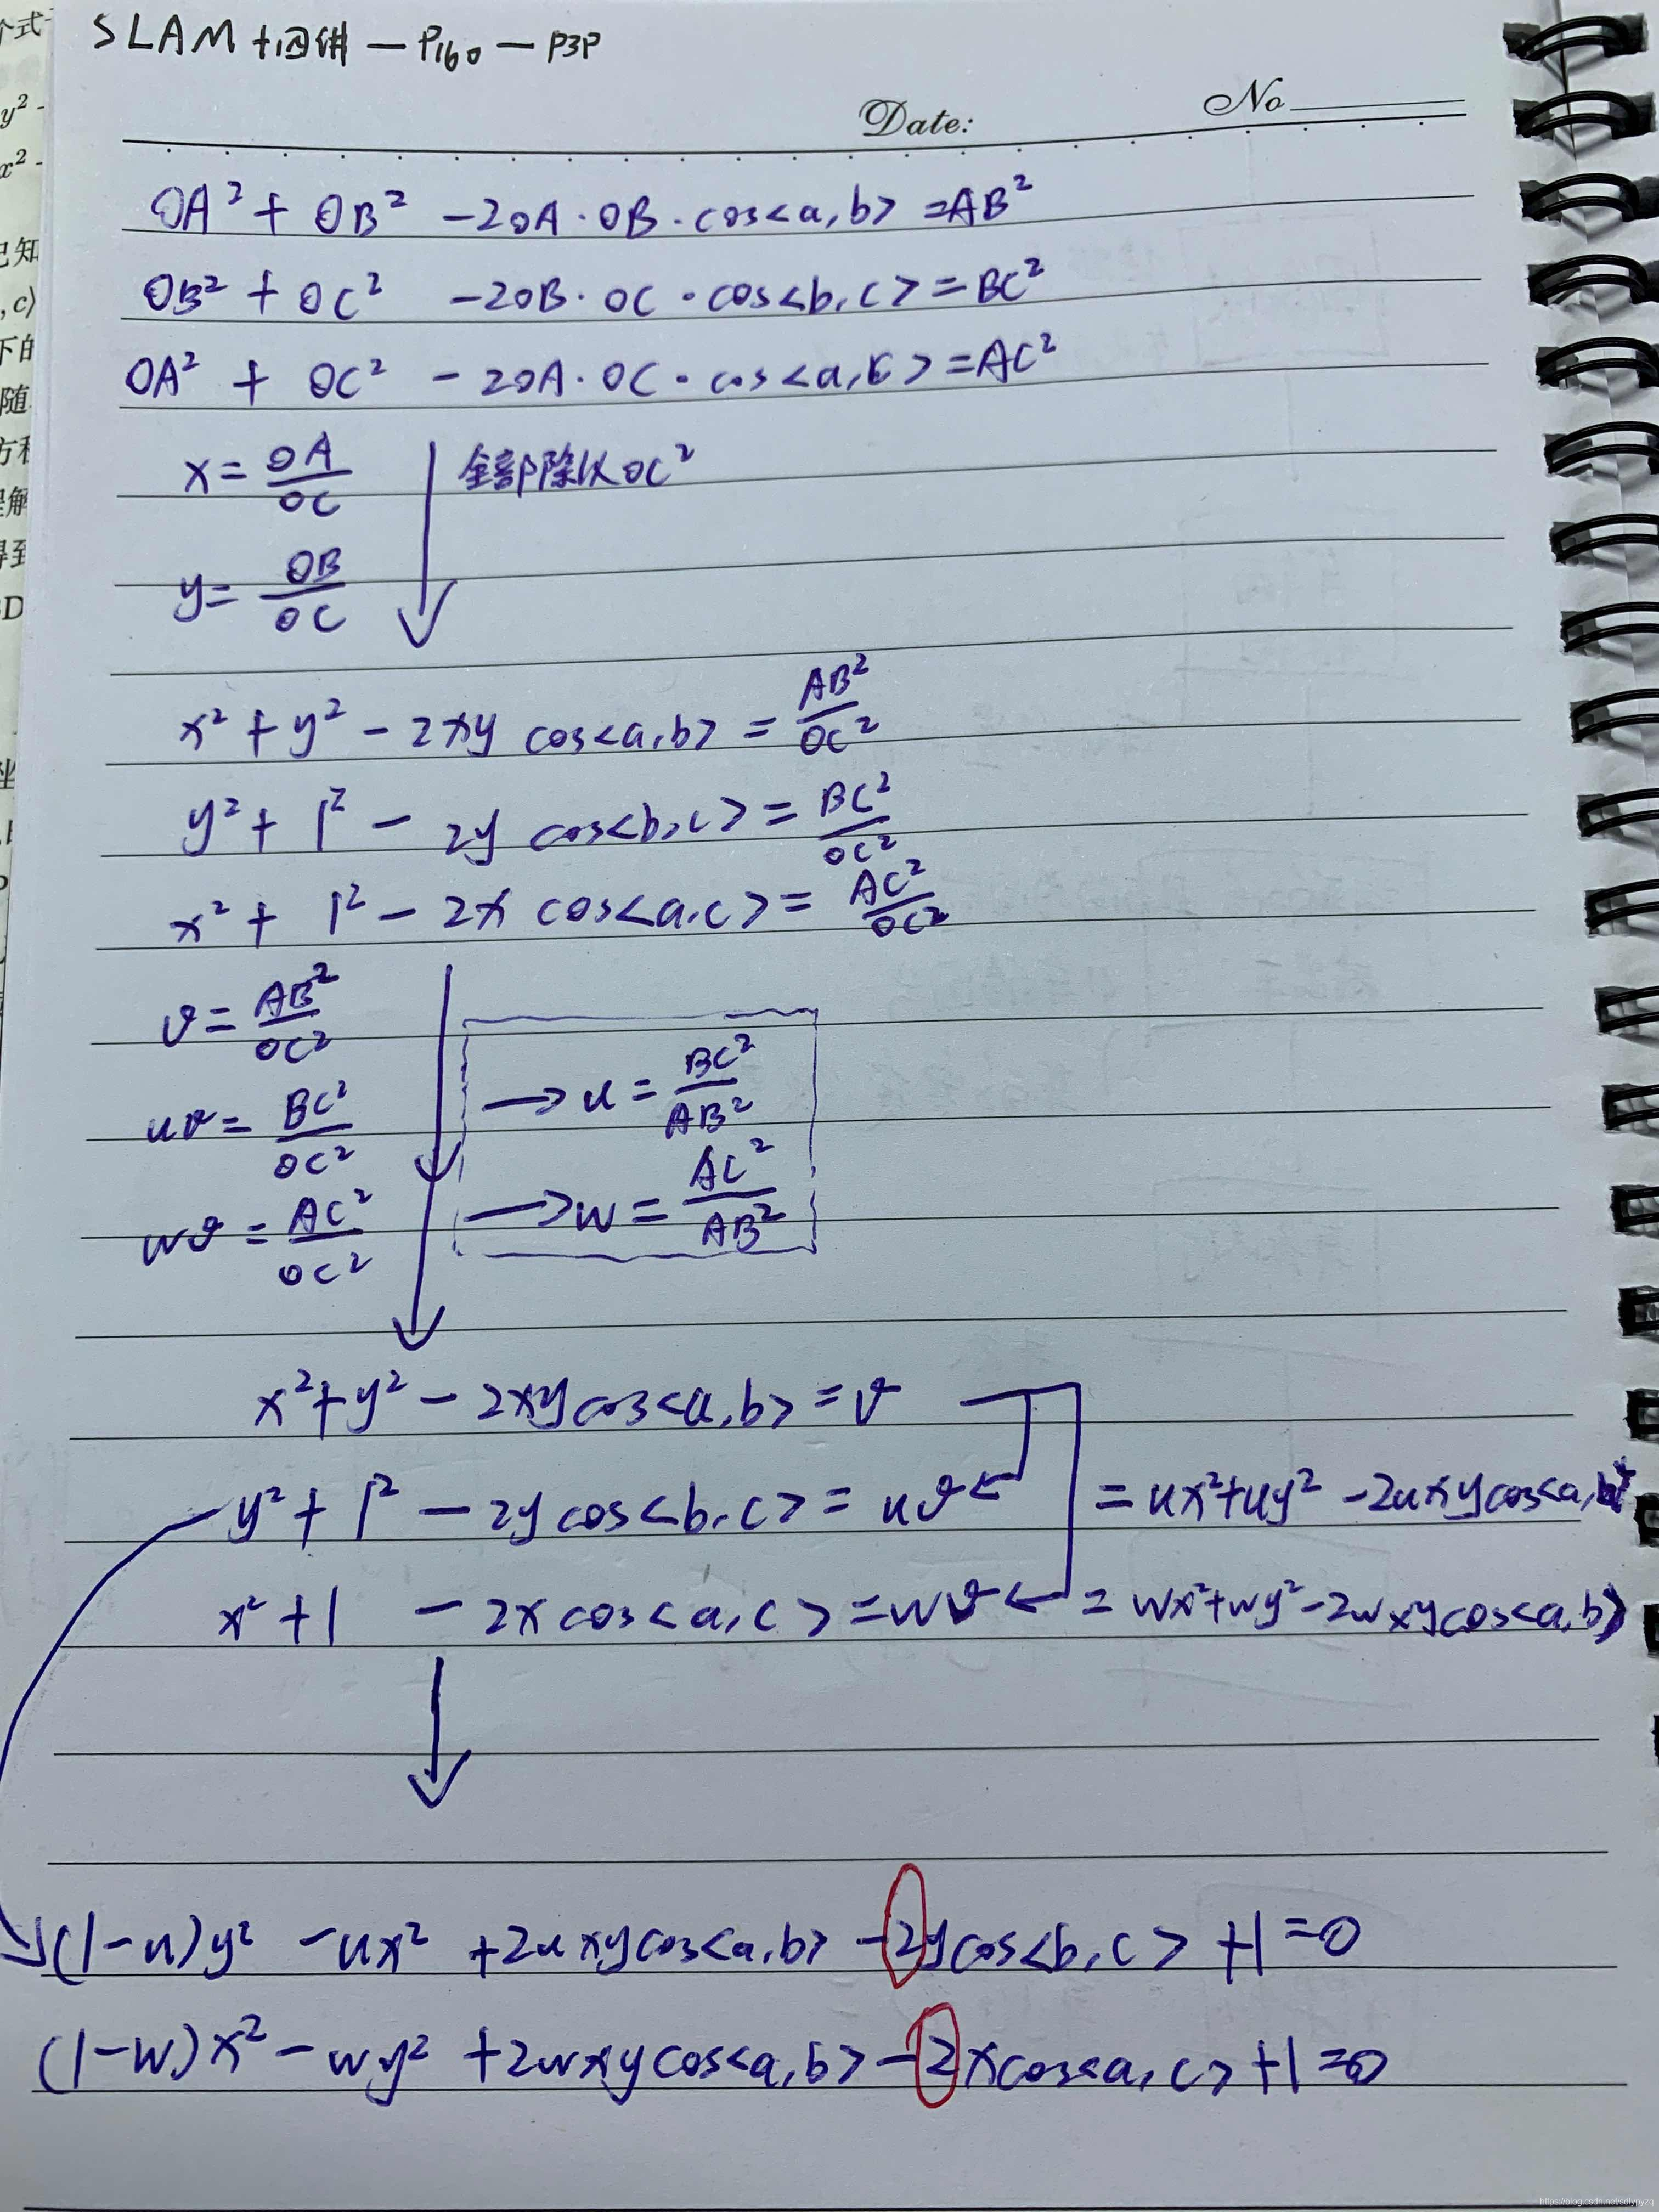 SLAM十四讲 — P160 — P3P
Date: No
OA² + OB² -2OA·OB·cos<a,b> =AB²
OB² + OC² -2OB·OC·cos<b,c> =BC²
OA² + OC² -2OA·OC·cos<a,c> =AC²
x= OA/OC 全部除以OC²
y= OB/OC
x² + y² - 2xy cos<a,b> = AB²/OC²
y² + 1² - 2y cos<b,c> = BC²/OC²
x² + 1² - 2x cos<a,c> = AC²/OC²
v= AB²/OC²
uv= BC²/OC² → u= BC²/AB²
wv= AC²/OC² → w= AC²/AB²
x²+y² - 2xycos<a,b> =v
y²+1² - 2ycos<b,c> = uv = ux²+uy² -2uxycos<a,b>
x²+1 - 2xcos<a,c> =wv = wx²+wy²-2wxycos<a,b>
(1-u)y² -ux² +2uxycos<a,b> -2ycos<b,c> +1=0
(1-w)x² -wy² +2wxycos<a,b> -2xcos<a,c> +1=0
个式
y² -
x² -
已知
,c⟩
下的
随
得到
https://blog.csdn.net/sdlypyzq